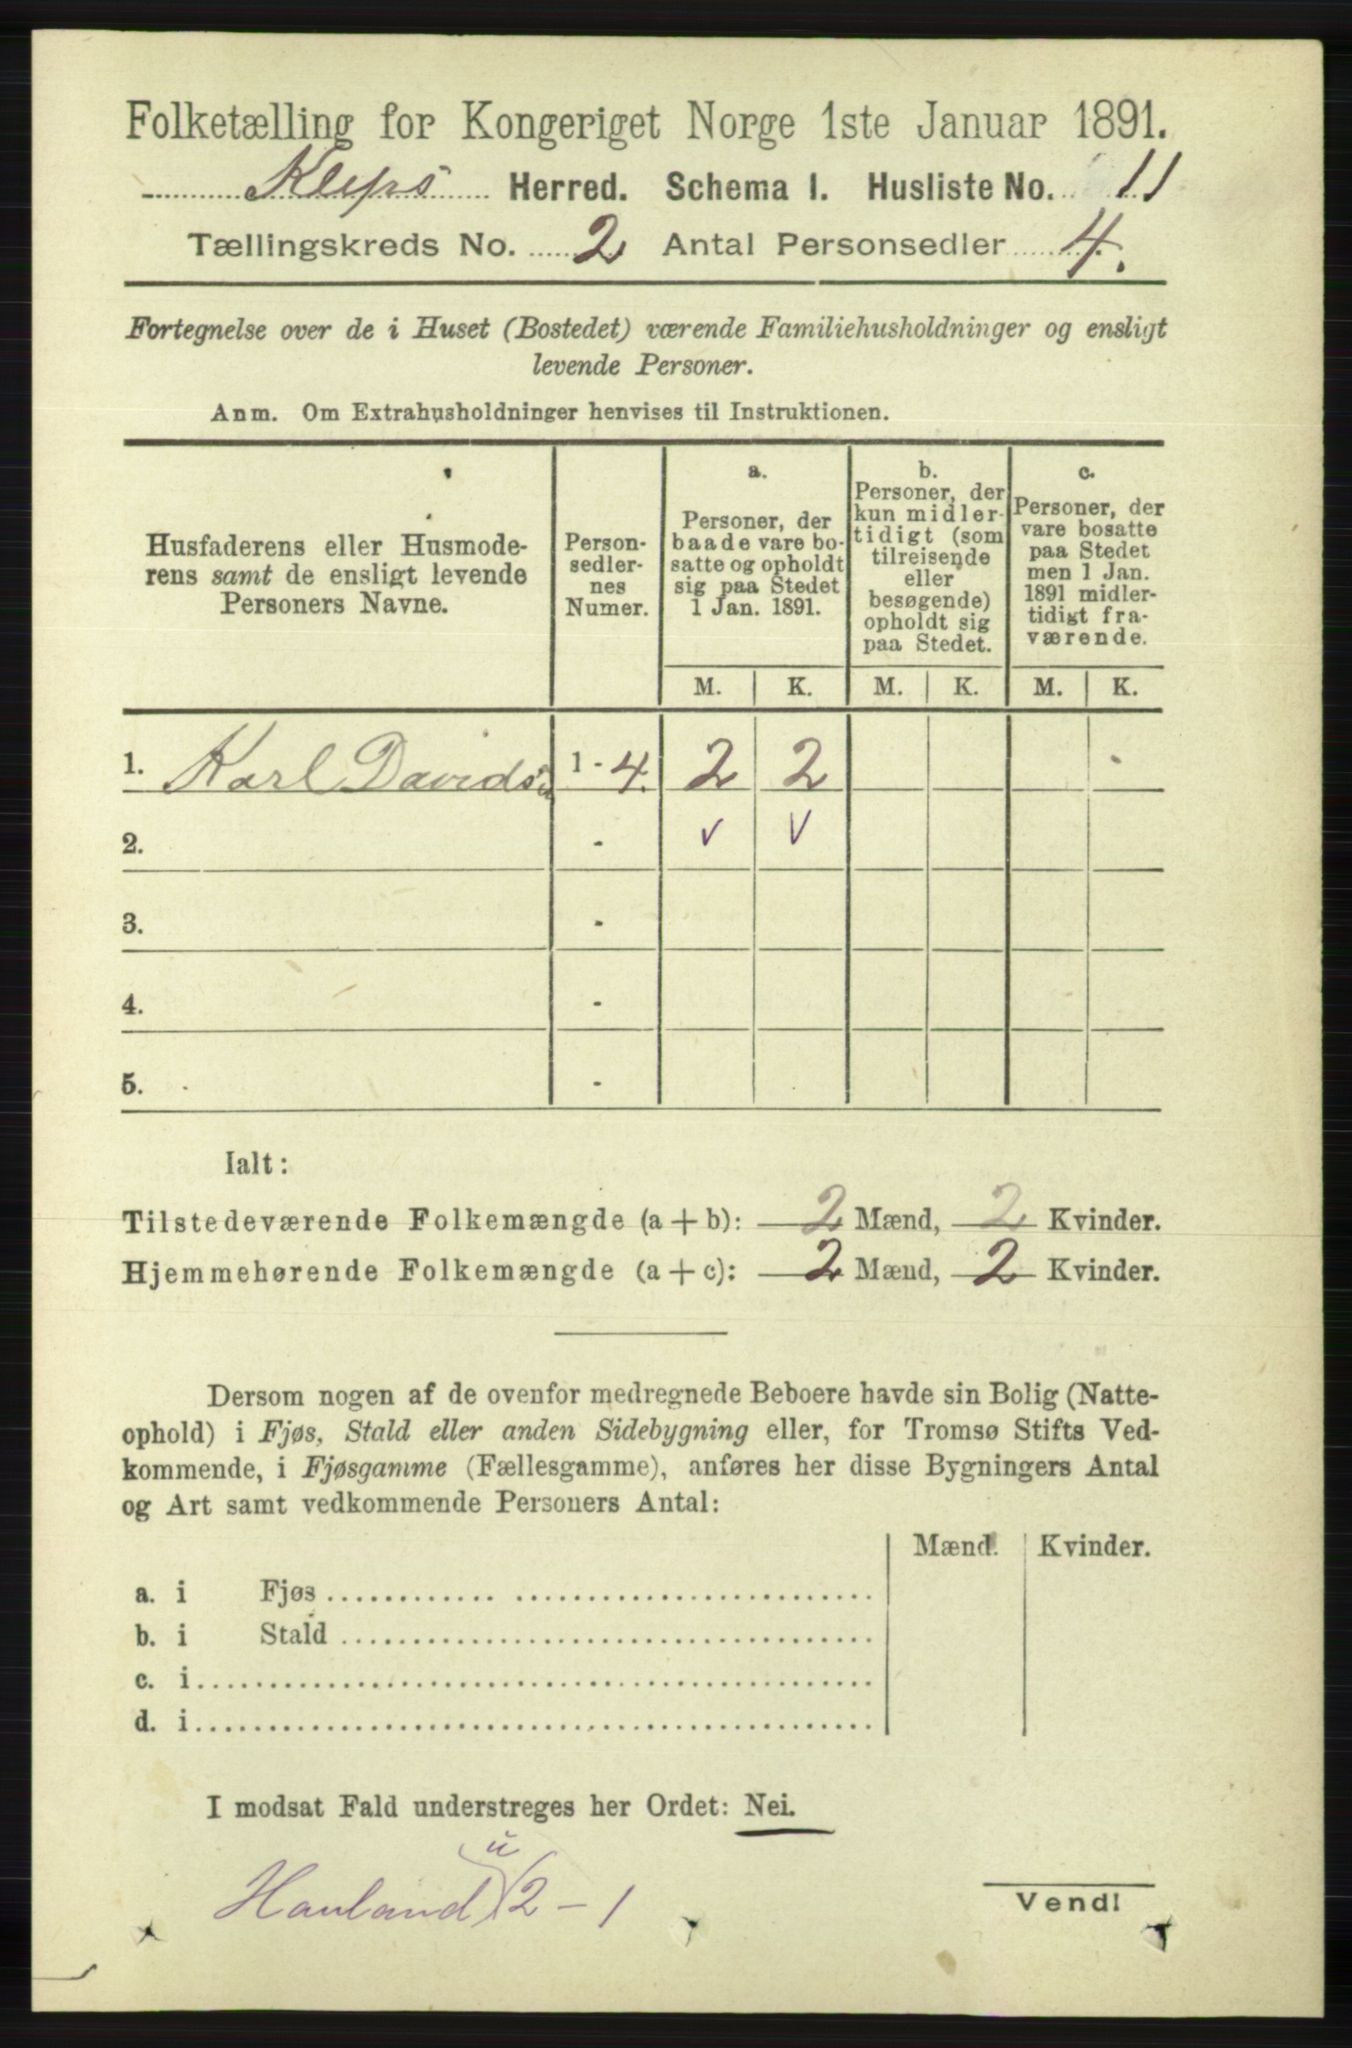 Folketælling for Kongeriget Norge 1ste Januar 1891.
Kleps Herred. Schema I. Husliste No. 11
Tællingskreds No. 2 Antal Personsedler 4.
Fortegnelse over de i Huset (Bostedet) værende Familiehusholdninger og ensligt
levende Personer.
Anm. Om Extrahusholdninger henvises til Instruktionen.
Husfaderens eller Husmode-
rens samt de ensligt levende
Personers Navne.
Person-
sedler-
nes
Numer.
a.
Personer, der
baade vare bo-
satte og opholdt
sig paa Stedet
1 Jan. 1891.
b.
Personer, der
kun midler-
tidigt (som
tilreisende
eller
besøgende)
opholdt sig
paa Stedet.
c.
Personer, der
vare bosatte
paa Stedet
men 1 Jan.
1891 midler-
tidigt fra-
værende.
M. K. M. K. M. K.
1. Karl Davids 1 - 4. 2 2
2. - v v
3. -
4. -
5. -
Ialt:
Tilstedeværende Folkemængde (a + b): 2 Mænd, 2 Kvinder.
Hjemmehørende Folkemængde (a + c): 2 Mænd, 2 Kvinder.
Dersom nogen af de ovenfor medregnede Beboere havde sin Bolig (Natte-
ophold) i Fjøs, Stald eller anden Sidebygning eller, for Tromsø Stifts Ved-
kommende, i Fjøsgamme (Fællesgamme), anføres her disse Bygningers Antal
og Art samt vedkommende Personers Antal:
Mænd. Kvinder.
a. i Fjøs
b. i Stald
c. i
d. i
I modsat Fald understreges her Ordet: Nei.
u
Hauland 2 - 1
Vend!